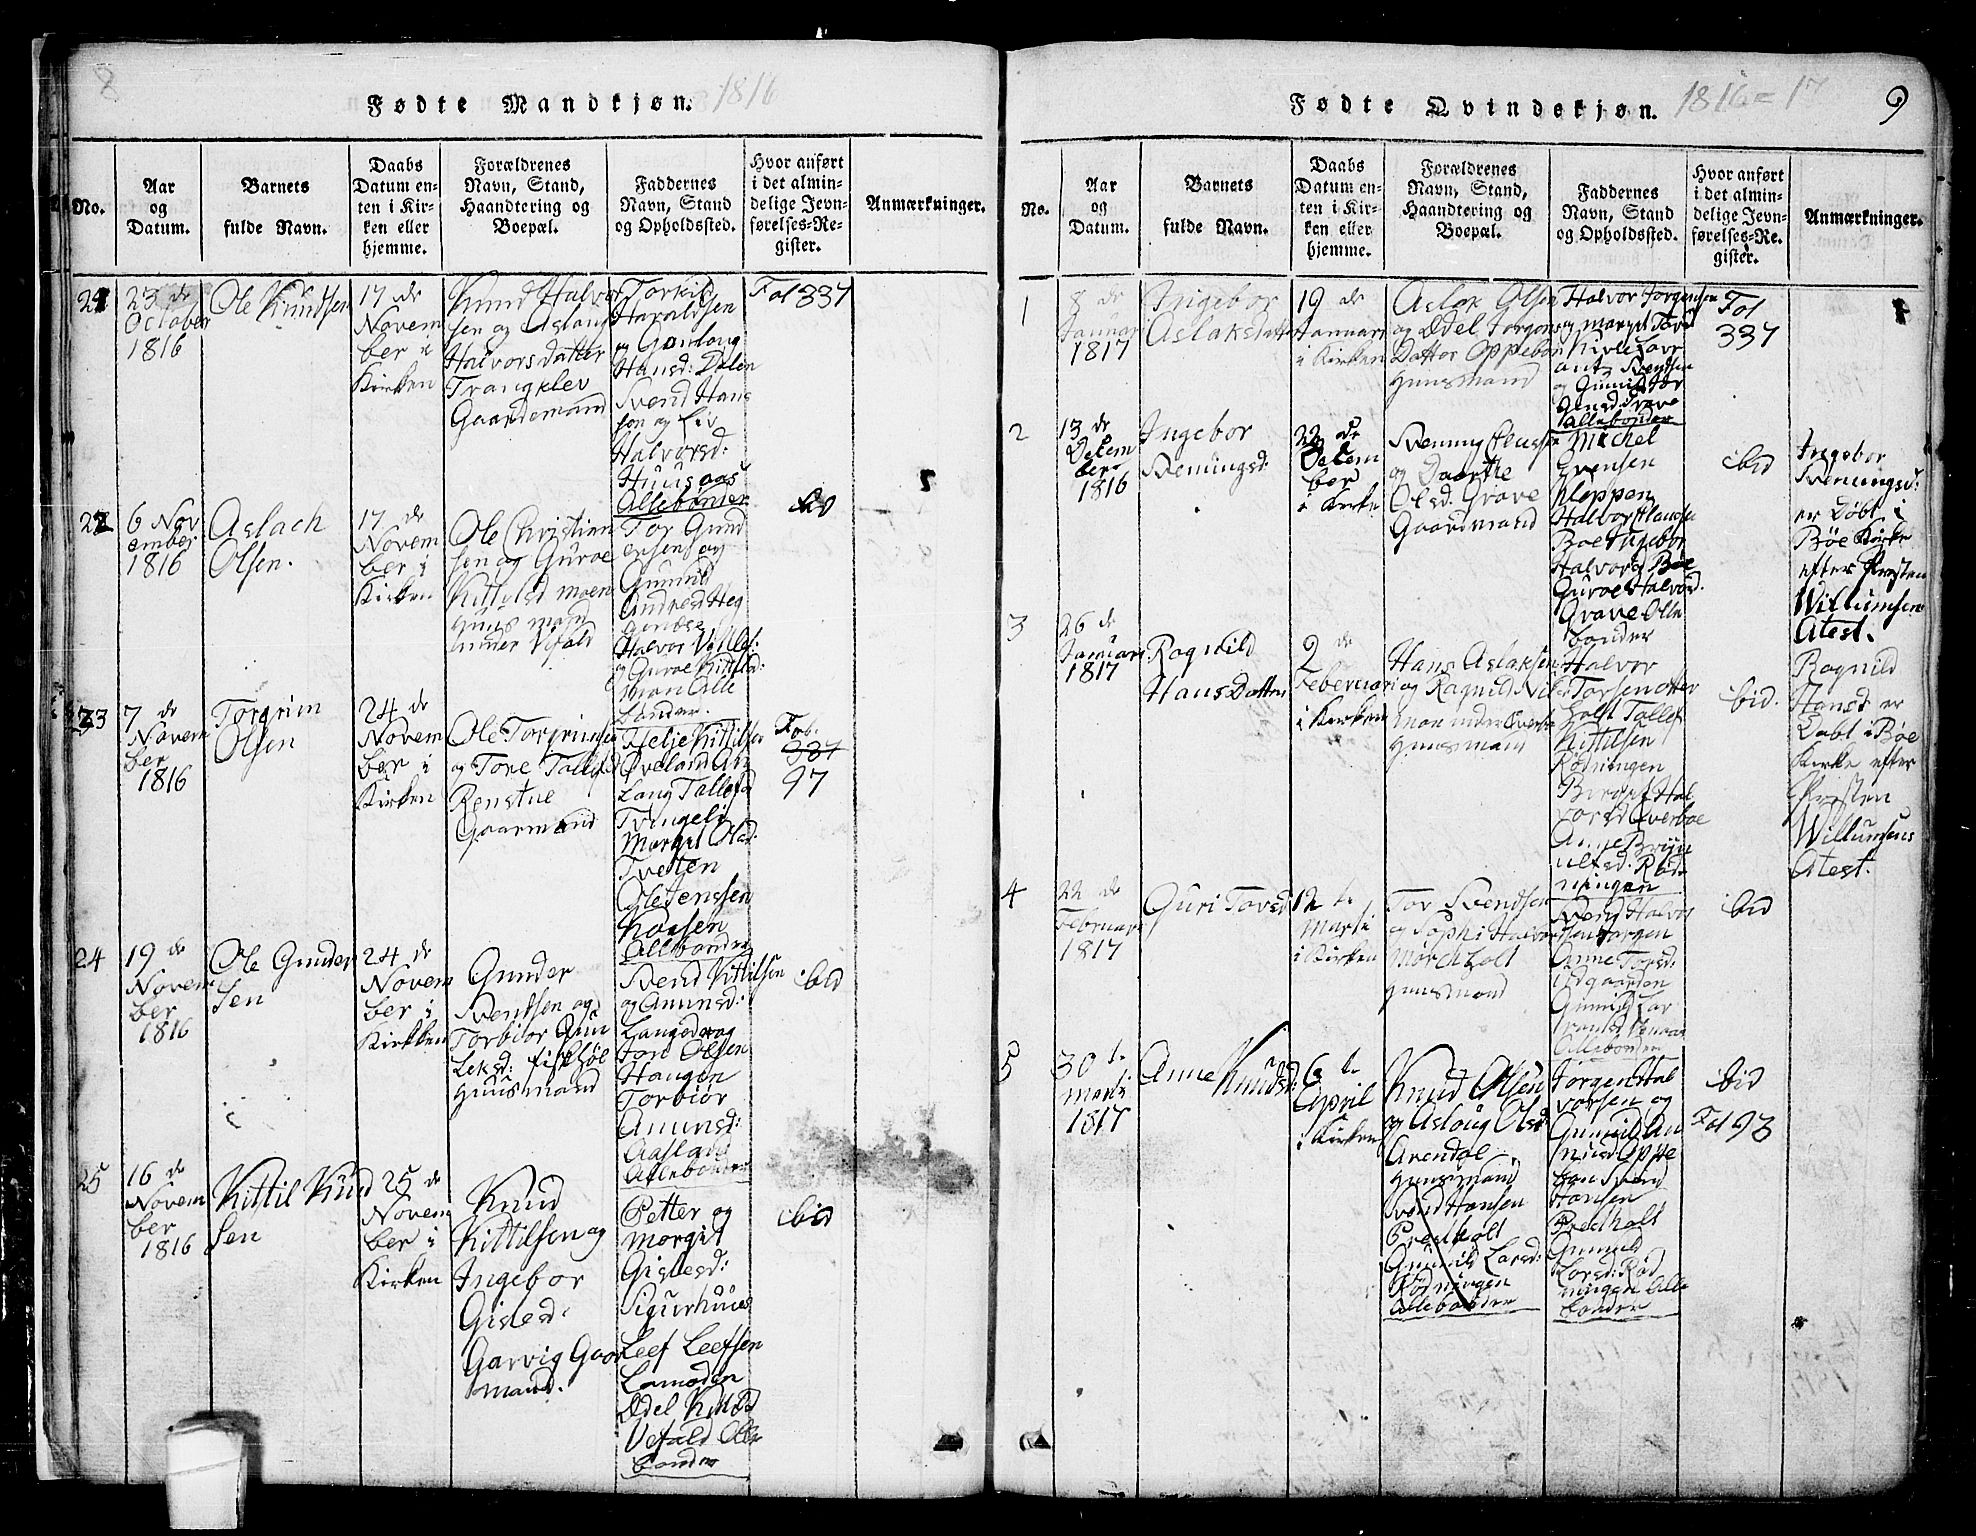 8
Fødte Mandkjøn. 1816
No.
Aar
og
Datum.
Barnets
fulde Navn.
Daabs
Datum en-
ten i Kir-
ken eller
hjemme.
Forældrenes
Navn, Stand,
Haandtering og
Boepæl.
Faddernes
Navn, Stand
og Opholdssted.
Hvor anført
i det almin-
delige Jevn-
førelses-Re-
gister.
Anmærkninger.
21
23 de
October
1816
Ole Knudsen
17 de
Novem
ber i
Kirken
Knud Halvor
sen og Aslaug
Halvorsdatter
Trangklev
Gaardemand
Torkild
Haraldsen
og Gonlaug
Hansd: Dalen
Svend Hans
sen og Liv
Halvorsd:
Huusaas
Allebønder
Fol 337
22
6 Nov
ember
1816
Aslach
Olsen.
17 de
Novem
ber i
Kirken
Ole Christian
sen og Guroe
Kittilsd moen
Huus mand
under Vefald
Tor Gund
ersen og
Gunild
Andresd Heg
Halvor
og Guroe Kittilsd:
moan Alle
bønder.
ibid
23
7 de
Novem
ber
1816
Torgrim
Olsen
24 de
Novem
ber i
Kirken
Ole Torgrimsen
og Tone Tallefsd
Renstue
Gaarmand
Helje Kittilsen
Øveland
Laug Tallefsd
Tvingeli
Morget Olsd:
Tveten
Ole Jenssen
Kaasen
Allebønder
Fol.
337
97
24
19 de
Novem
ber
1816
Ole Gunder
sen
24 de
Novem
ber i
Kirkken
Gunder
Svendsen og
Torbior Gun
leksd:
Huusmand
Svend Kittilsen
og Anunsd:
Langeder og
Jon Olsen
Haugen
Torbior
Anunsd:
Aasland
Allebønder
ibid
25
16 de
Novem
ber
1816
Kittil Knud
sen
25 de
Novem
ber i
Kirken
Knud
Kittilsen og
Ingebor
Gislesd:
Garvig Gaar
mand.
Petter og
Morgit
Gislesd:
Sigurhuus
Leef Leefsen
Lamoden
Ødel Knudsd
Vefald Alle
bønder
9
Fødte Qvindekjøn. 1816=17
No.
Aar
og
Datum.
Barnets
fulde Navn.
Daabs
Datum en-
ten i Kir-
ken eller
hjemme.
Forældrenes
Navn, Stand,
Haandtering og
Boepæl.
Faddernes
Navn, Stand
og Opholdssted.
Hvor anført
i det almin-
delige Jevn-
førelses-Re-
gister.
Anmærkninger.
1
8 de
Januar
1817
Ingebor
Aslaksdatter
19 de
Januari
i Kirken
Aslak Olsen
og Ødel Jorgens
Datter Oppebøen
Huusmand
Halvor Jorgensen
og Morget Tovsd
Svendsen
og Gunild Tor
Grave
Allebonder
Fol
337
2
13 de
Decem
ber
1816
Ingebor
Svenungsd:
22 de
Decem
ber
i Kirke
Svenung Clausen
og Daarthe
Olsd: Grave
Gaardmand
Michel
Evensen
Kleppen
Halvor Clausen
Boe Ingebor
Halvorsd Bøe
Guroe Halvorsd.
Grave Alle
bonder
ibid
Ingebor
Svenungsd:
er Døbt i
Bøe Kirke
efter Presten
Willumsens
Atest.
3
26 de
Januari
1817
Ragnild
Hans Datter
2 de
Februari
i Kirken
Hans Aslaksen
og Ragnild Nils
moe under Everbø
Huusmand
Halvor
Torsen Otter
holt Tallef
Kittilsen
Rødningen
Birgit Hal
vorsd Øverboe
Anne Bryn
ulfsd: Rød
ningen
ibid.
Ragnild
Hansd: er
Dobt i Bøe
Kirke efter
Presten
Willumsens
Atest.
4
22 de
Februari
1817
Guri Torsd
12 te
Marti
i Kirken
Tor Svendsen
og Sophi Halvorsd
Mørchholt
Huusmand
Svend Halvor
sen Jorgen
Anne Torsd:
Udgaarden
Gunild Lar
Allebonder
ibid
5
30 te
marti
1817
Anne Knudsd:
6 te
April
i Kirken
Knud Olsen
og Aslaug Olsd
Arendal
Huusmand
Svend Hansen
Bredholt
Gunild Larsd:
Rødningen
Allebønder
Jorgen Hal
vorsen og
Gunild An
Oppe
bøn Svend
Hansen
Bredholt
Gunild
Larsd: Rød
ningen Alle
bonder
ibid
Fol 93